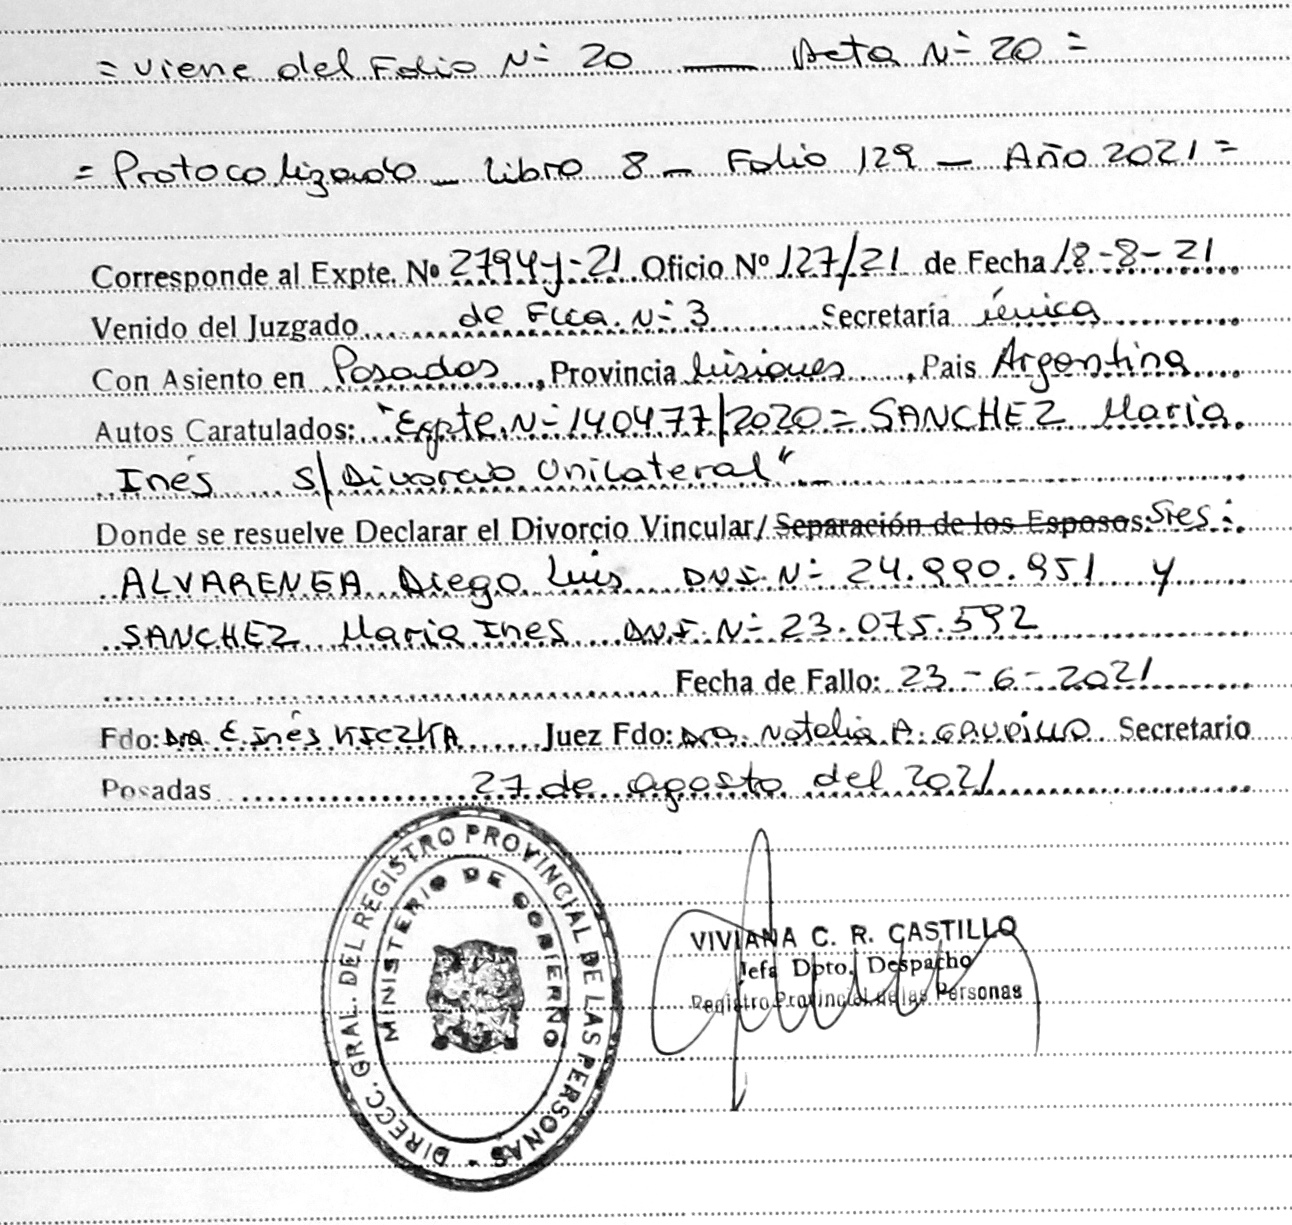 = Viene del Folio Nº 20 — Acta Nº 20 =
= Protocolizado - Libro 8 - Folio 129 - Año 2021 =
Corresponde al Expte. Nº 2794y-21 Oficio Nº 127/21 de Fecha 18-8-21
Venido del Juzgado de Flia. Nº 3 Secretaría única
Con Asiento en Posadas, Provincia Misiones, Pais Argentina
Autos Caratulados: "Expte. Nº 140477/2020 = SANCHEZ Maria
Inés s/ Divorcio Unilateral"
Donde se resuelve Declarar el Divorcio Vincular/ Separación de los Esposos: Sres:
ALVARENGA Diego Luis D.N.I. Nº 24.990.951 y
SANCHEZ Maria Ines D.N.I. Nº 23.075.592
Fecha de Fallo: 23-6-2021
Fdo: Dra. E. Inés KICZKA Juez Fdo: Dra. Natalia A. GAUDILLO Secretario
Posadas 27 de agosto del 2021
DIRECC. GRAL. DEL REGISTRO PROVINCIAL DE LAS PERSONAS -
MINISTERIO DE GOBIERNO
VIVIANA C. R. CASTILLO
Jefa Dpto. Despacho
Registro Provincial de las Personas